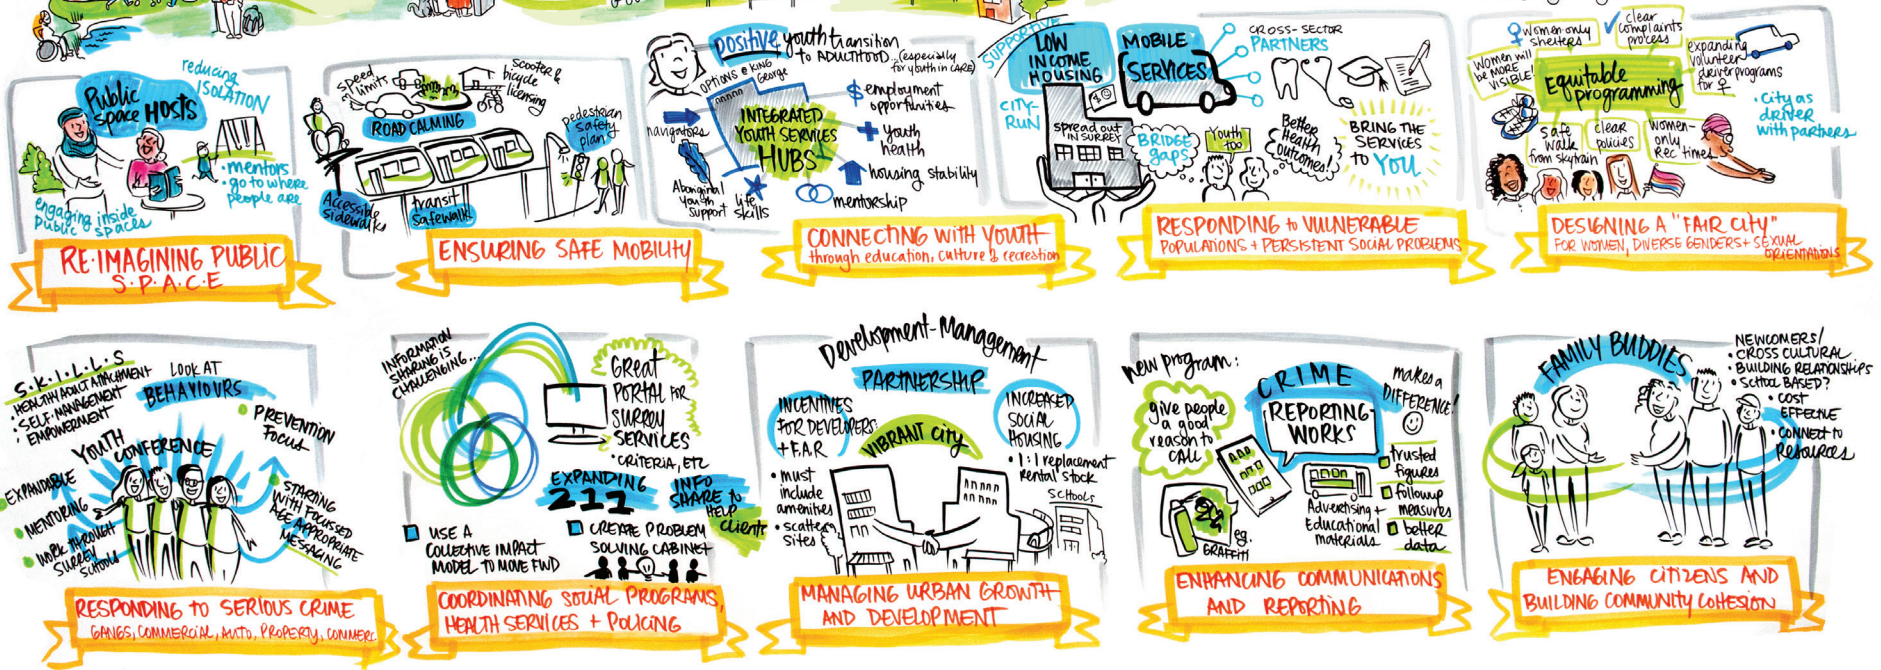 reducing
ISOLATION
Public
space HOSTS
• mentors
• go to where
people are
engaging inside
public spaces
RE-IMAGINING PUBLIC
S·P·A·C·E
speed
limits
scooter &
bicycle
licensing
ROAD CALMING
pedestrian
safety
plan
Accessible
sidewalks
transit
safewalk
ENSURING SAFE MOBILITY
positive youth transition
to ADULTHOOD... (especially
for youth in CARE)
OPTIONS @ KING
George
navigators
INTEGRATED
YOUTH SERVICES
HUBS
$ employment
opportunities
+ youth
health
housing stability
mentorship
Aboriginal
Youth
Support
life
skills
CONNECTING WITH YOUTH
through education, culture & recreation
SUPPORTIVE
LOW
INCOME
HOUSING
CITY-
RUN
spread out
IN SURREY
MOBILE
SERVICES
CROSS-SECTOR
PARTNERS
BRIDGE
gaps
Youth
too
Better
Health
outcomes!
BRING THE
SERVICES
to YOU
RESPONDING to VULNERABLE
POPULATIONS + PERSISTENT SOCIAL PROBLEMS
women-only
shelters
✓ clear
complaints
process
women will
be MORE
VISIBLE!
Equitable
programming
expanding
volunteer
driver programs
for ♀
• City as
driver
with partners
safe
walk
from skytrain
clear
policies
women-
only
rec times
DESIGNING A "FAIR CITY"
FOR WOMEN, DIVERSE GENDERS + SEXUAL
ORIENTATIONS
S·K·I·L·L·S
• HEALTHY ADULT ATTACHMENT
• SELF-MANAGEMENT
• EMPOWERMENT
LOOK AT
BEHAVIOURS
YOUTH
CONFERENCE
PREVENTION
FOCUS
EXPANDABLE
MENTORING
WORK THROUGH
SURREY
SCHOOLS
STARTING
WITH FOCUSSED
AGE APPROPRIATE
MESSAGING
RESPONDING to SERIOUS CRIME
GANGS, COMMERCIAL, AUTO, PROPERTY, COMMERC
INFORMATION
SHARING IS
CHALLENGING...
GREAT
PORTAL FOR
SURREY
SERVICES
• CRITERIA, ETC
EXPANDING
211
INFO
SHARE to
HELP
clients
USE A
COLLECTIVE IMPACT
MODEL TO MOVE FWD
CREATE PROBLEM
SOLVING CABINET
COORDINATING SOCIAL PROGRAMS,
HEALTH SERVICES + POLICING
Development-Management
PARTNERSHIP
INCENTIVES
FOR DEVELOPERS:
+ F.A.R
VIBRANT CITY
INCREASED
SOCIAL
HOUSING
• 1:1 replacement
rental stock
• must
include
amenities
• scatter
sites
SCHOOLS
MANAGING URBAN GROWTH
AND DEVELOPMENT
New program:
give people
a good
reason to
CALL
CRIME
REPORTING
WORKS
makes a
DIFFERENCE!
trusted
figures
followup
measures
better
data
Advertising +
Educational
materials
eg.
GRAFFITI
ENHANCING COMMUNICATIONS
AND REPORTING
FAMILY BUDDIES
NEWCOMERS/
• CROSS CULTURAL
• BUILDING RELATIONSHIPS
• SCHOOL BASED?
• COST
EFFECTIVE
• CONNECT to
RESOURCES
ENGAGING CITIZENS AND
BUILDING COMMUNITY COHESION